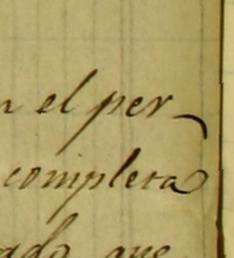 n el per-
completa
ado que